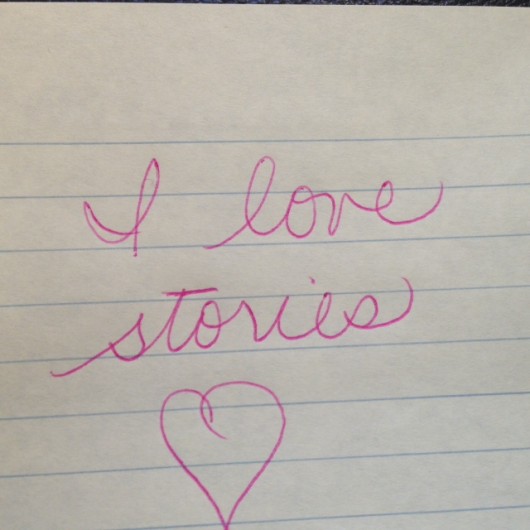 I love
stories